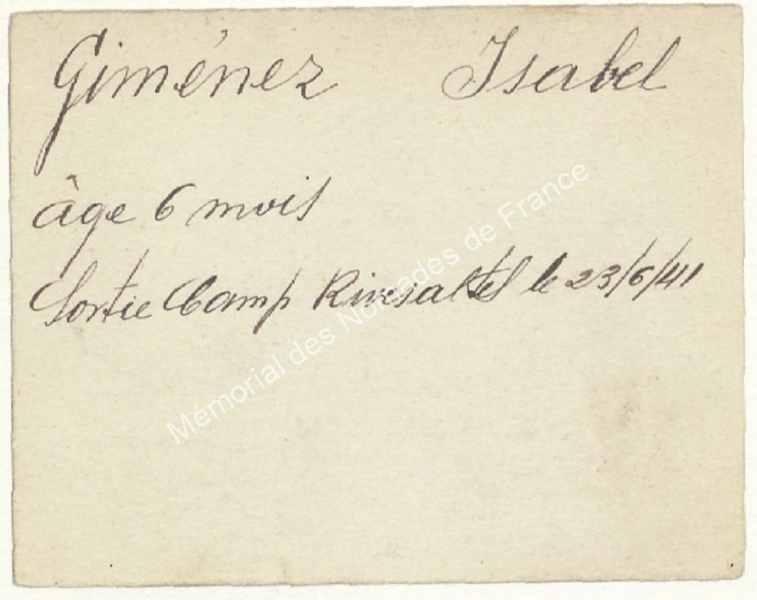 Giménez Isabel
âge 6 mois
Sortie Camp Rivesaltes le 23/6/41
Mémorial des Nomades de France